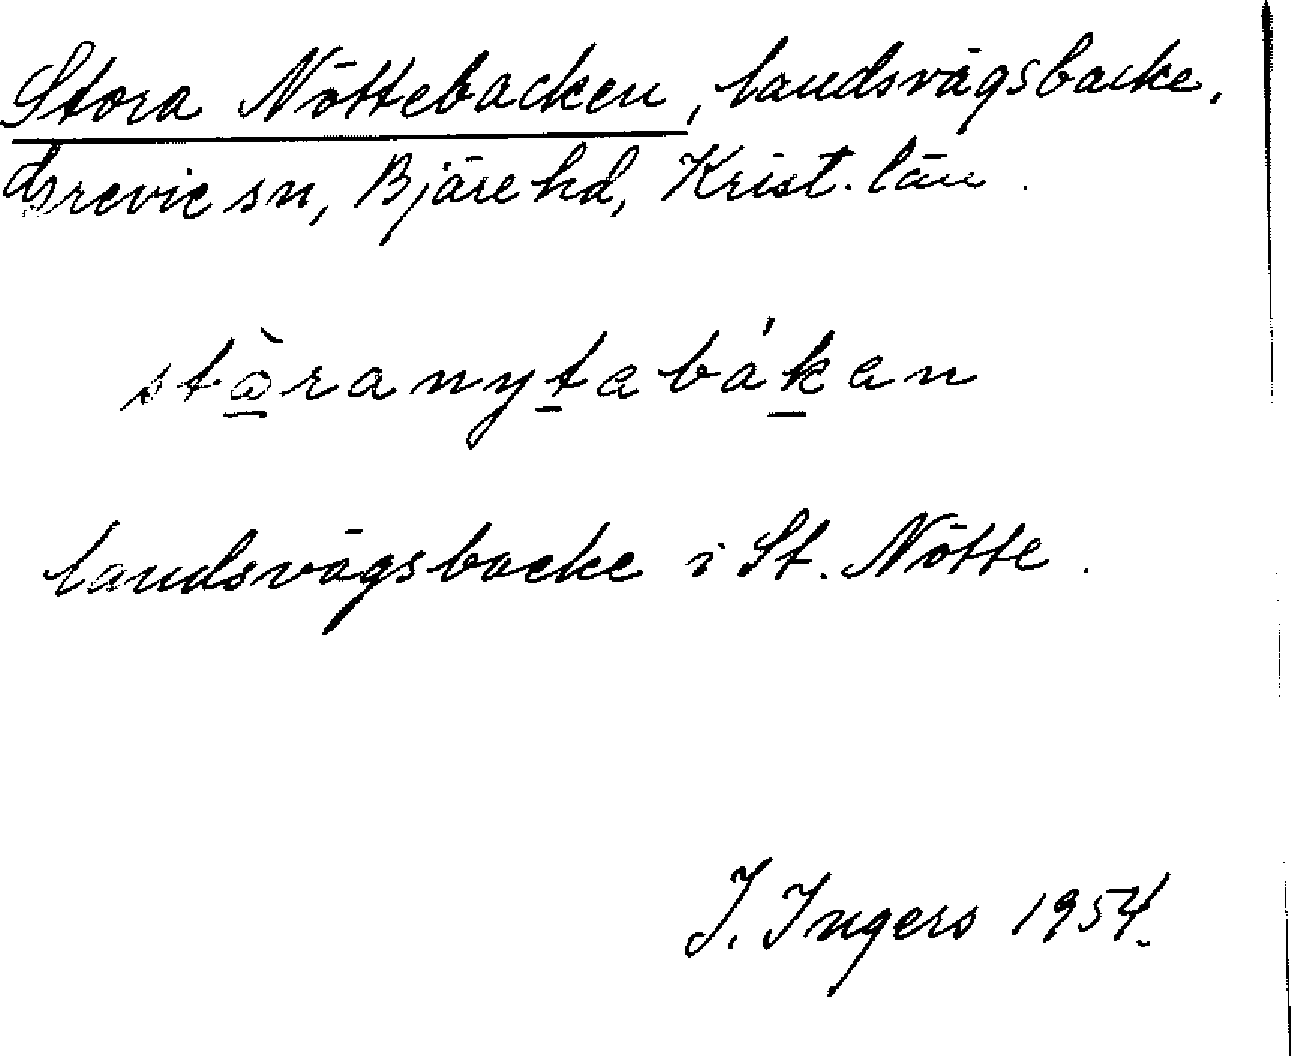 Stora Nöttebacken, landsvägsbacke.
Grevie sn, Bjäre hd, Krist. län.
stàranytabákan
landsvägsbacke i St. Nötte.
I. Ingers 1954.